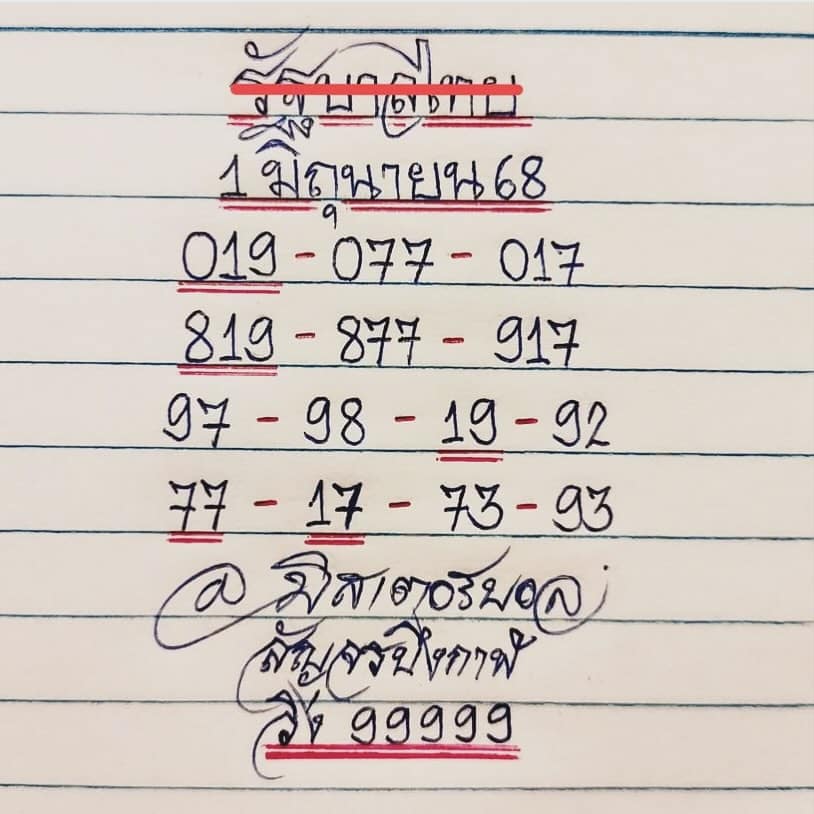 รัฐบาลไทย
1 มิถุนายน 68
019 - 077 - 017
819 - 877 - 917
97 - 98 - 19 - 92
77 - 17 - 73 - 93
@ มิสเตอร์บอล
สัญจรบึงกาฬ
วิ่ง 99999